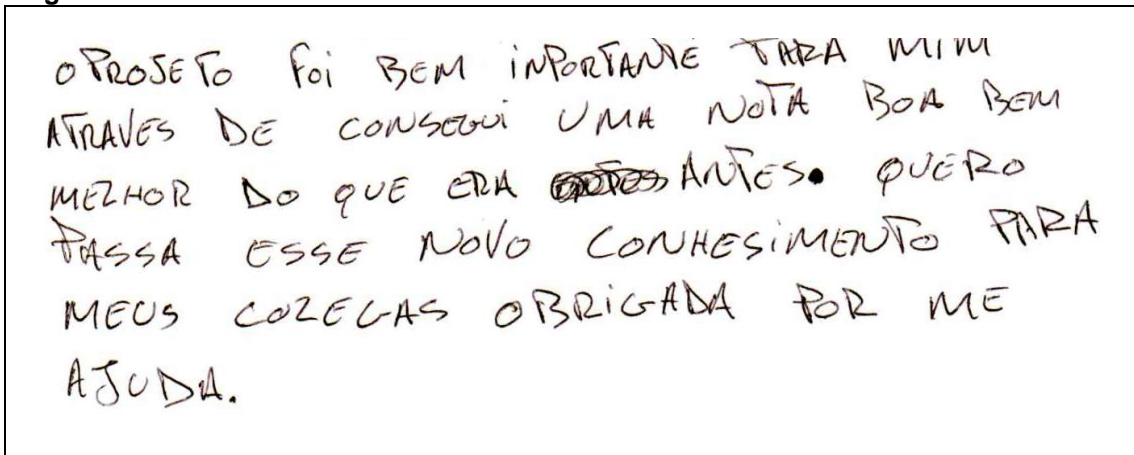 O PROJETO Foi BEM iNPORTANTE PARA MIM
ATRAVES DE CONSEGUi UMA NOTA BOA BEM
MELHOR DO QUE ERA ANTES. QUERO
PASSA ESSE NOVO CONHESiMENTO PARA
MEUS COLEGAS OBRiGADA POR ME
AJUDA.